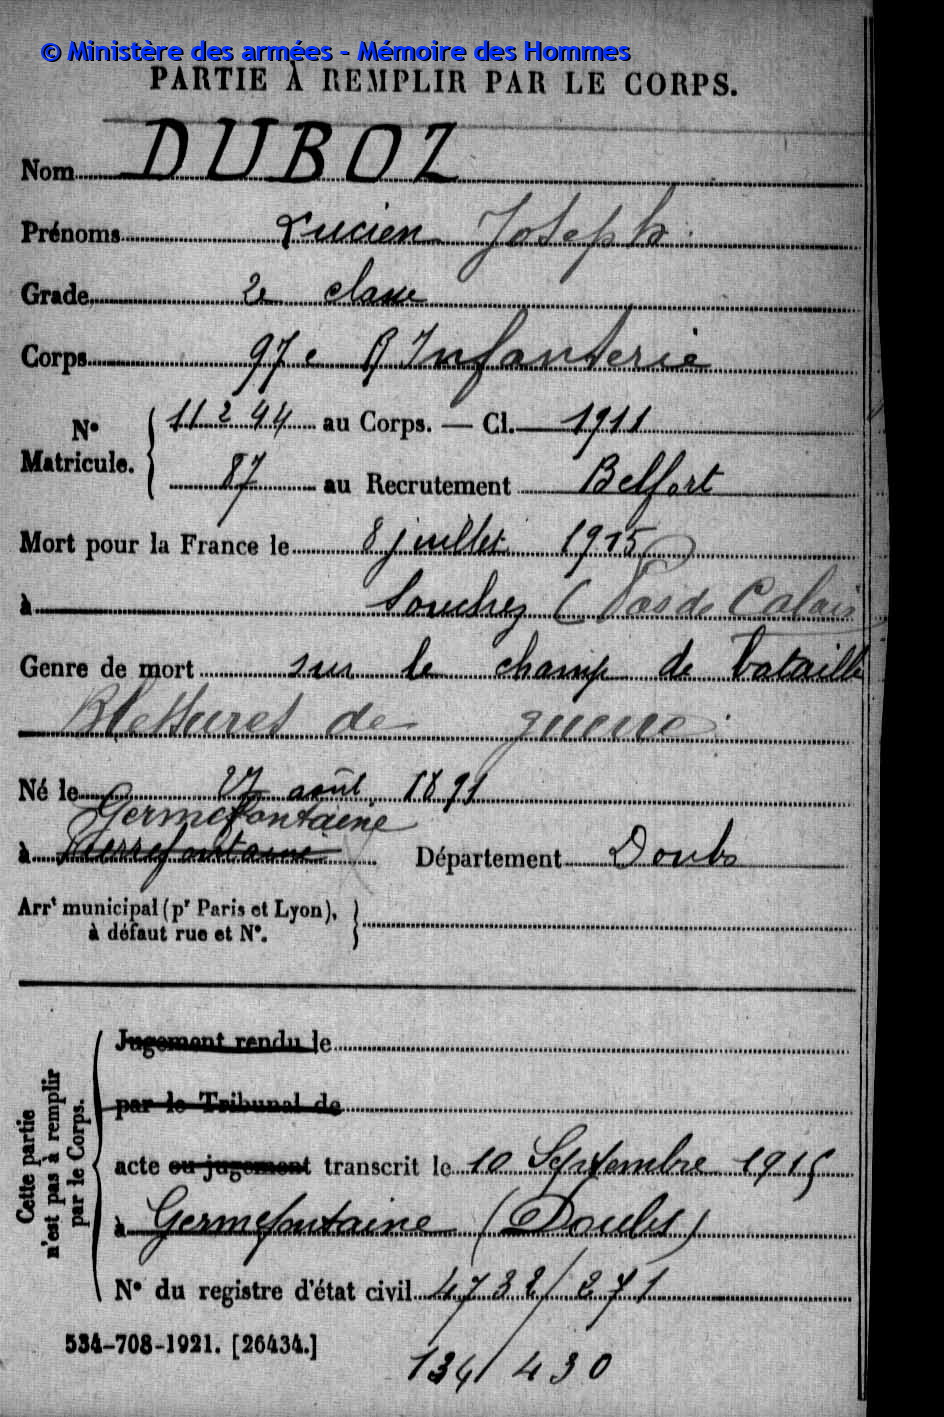 © Ministère des armées - Mémoire des Hommes
PARTIE À REMPLIR PAR LE CORPS.
Nom DUBOZ
Prénoms Lucien Joseph
Grade 2e classe
Corps 97e R Infanterie
N° Matricule. 11244 au Corps. — Cl. 1911
87 au Recrutement Belfort
Mort pour la France le 8 juillet 1915
à Souchez (Pas de Calais
Genre de mort sur le champ de bataille
Blessures de guerre
Né le 27 août 1891
Germéfontaine
à Pierrefontaine Département Doubs
Arrt municipal (pr Paris et Lyon),
à défaut rue et N°.
Cette partie
n'est pas à remplir
par le Corps.
Jugement rendu le
par le Tribunal de
acte ou jugement transcrit le 10 Septembre 1915
à Germéfontaine (Doubs)
N° du registre d'état civil 4732/271
534-708-1921. [26434.]
134/430